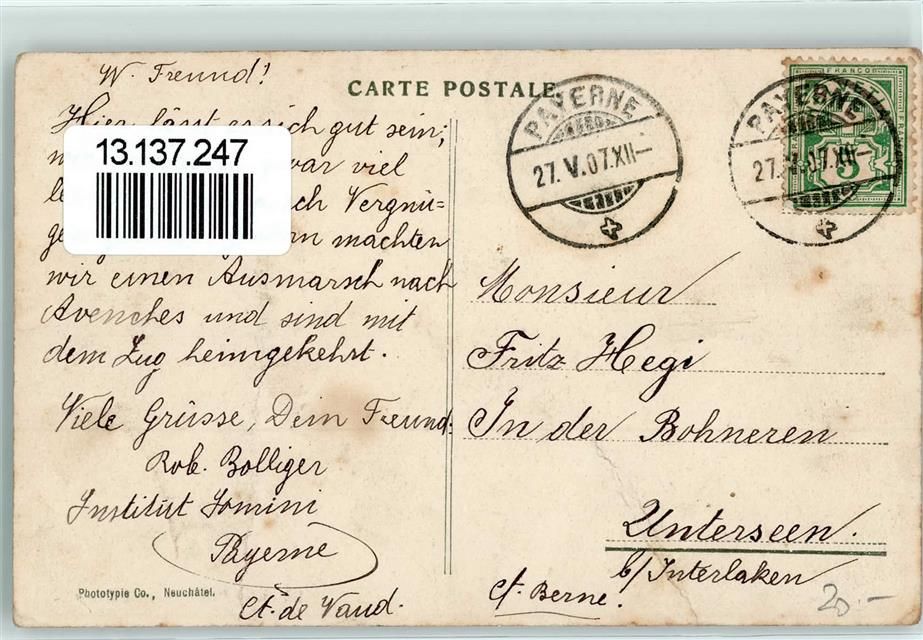 CARTE POSTALE.
W. Freund!
Hier lässt es sich gut sein;
war viel
Vergnü=
machten
wir einen Ausmarsch nach
Avenches und sind mit
dem Zug heimgekehrt.
Viele Grüsse, Dein Freund:
Rob. Bolliger
Institut Jomini
Payerne
Ct. de Vaud.
13.137.247
Phototypie Co., Neuchâtel.
PAYERNE
27.V.07.XII—
PAYERNE
27.V.07.XII—
FRANCO
5
Monsieur
Fritz Hegi
In der Bohneren
Unterseen.
b/Interlaken
Ct. Berne.
20.—